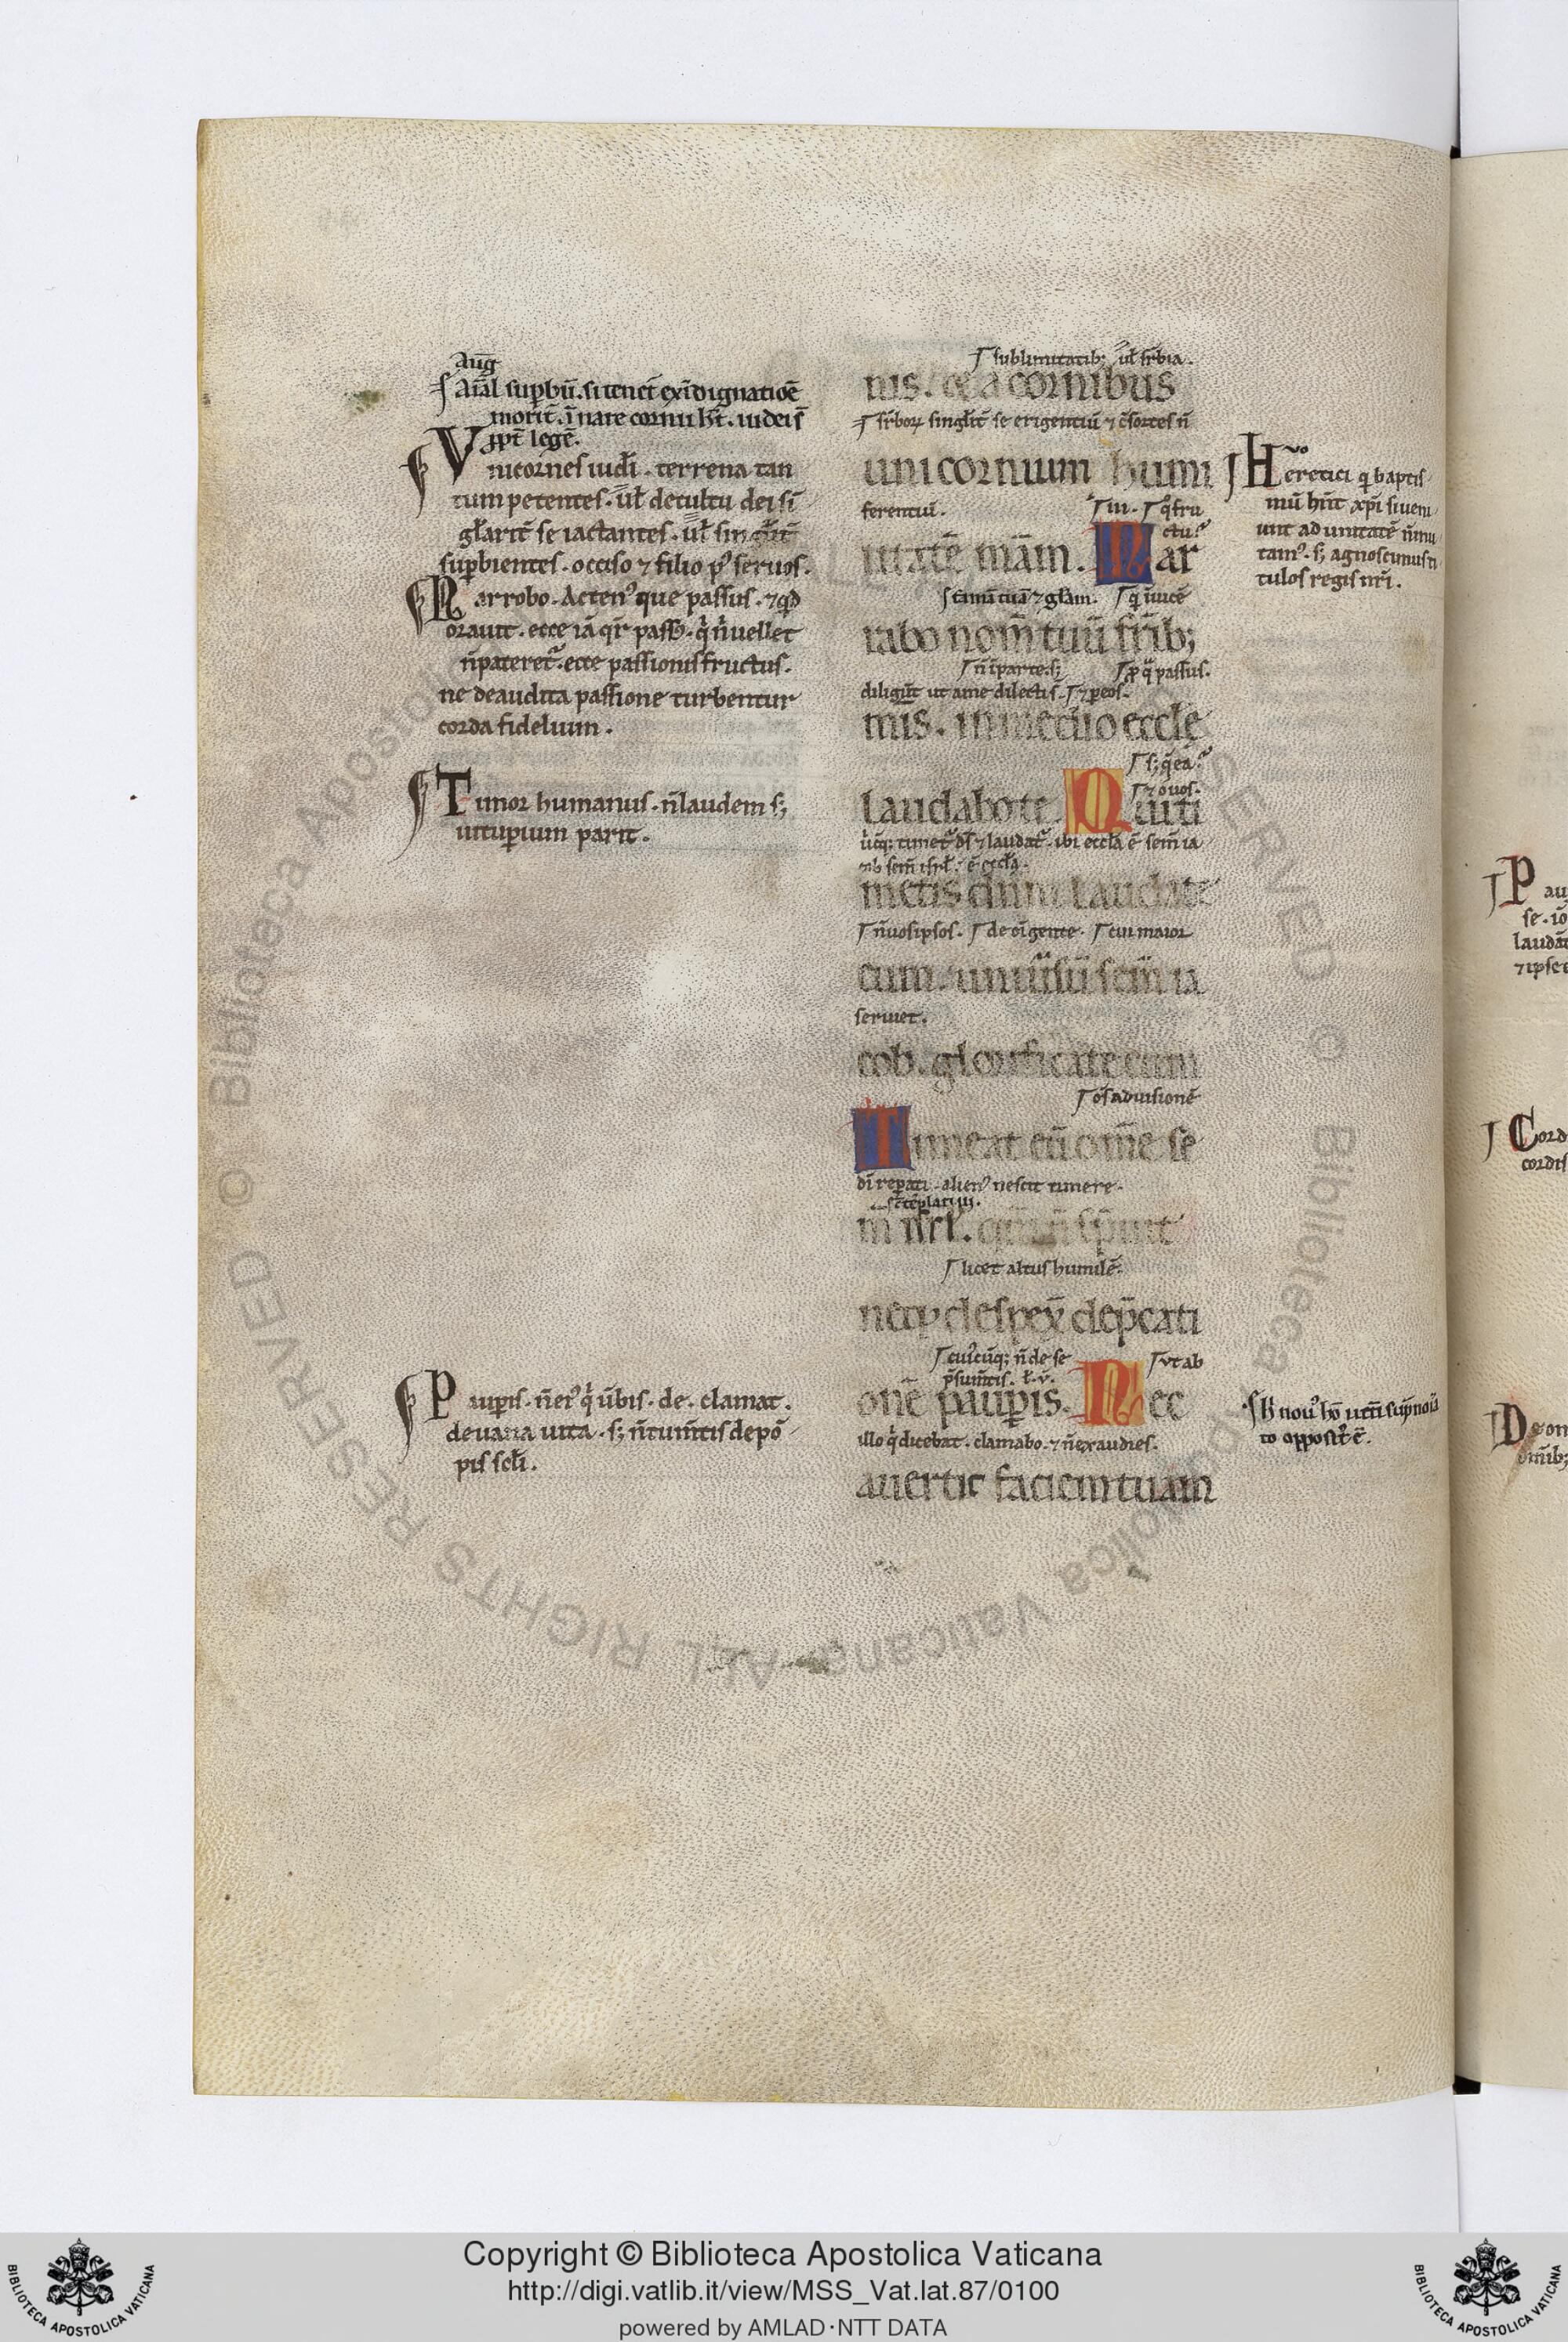 Aug̅
Aīal suꝑbū. si tenet̄ ex īdignatiōe
morit̄. ī nare cornu h̄t. iudei s̄
ꝓpt̄ legē.
Vnicornes iudi̅. terrena tan
tum petentes. ul̄ de cultu dei si̅
gl̄arit̄ se iactantes. ul̄
suꝑbientes. occiso ⁊ filio p᷒ seruos.
Narrabo. Acten᷒ que passus. ⁊ qd̅
orauit. ecce iā qr̄ pass᷒. q̓ n̄ uellet
n̄ pateret᷑. ecce passionis fructus.
ne de audita passione turbentur
corda fidelium.
Timor humanus. n̄ laudem s;
uituꝑium parit.
Pauꝑis. n̄ ei᷒ q̓ u̅bis. de. clamat.
de uana uita. s; n̄ tum̄tis de po̅
pis scl̄i.
sublimitatib; ul̄ suꝑbia.
nis. et a cornibus
singl̄it̄ se erigentiū ⁊ c̄sortes n̄
unicornium humi
ferentiū.
q̓ fru
ctu?
litatē meam. Nar
famā tuā ⁊ gl̄am. q̓ inuicē
rabo nom̄ tuū frīb;
n̄ ī parte. s; ꝓ q̓ passus.
diligūt ut a me dilecti s̄. ⁊ ꝑ eos.
meis. in medio eccl̄e
s; q̄ ea?
laudabo te. Qui ti
u̓cūq; timet᷑ ds̄ ⁊ laudat᷑. ibi eccl̄a ē sem̄ ia
cob sem̄ isrl̄. ē eccl̄a.
metis dnm̄ laudate
n̄ uos ipsos. de oī gente. cui maior
eum. uniu̓sū sem̄ ia
seruiet.
cob. glorificate eum
os̄ ad uisionē
Timeat eū om̄e se
di̅ reꝑati. alien᷒ nescit timere.
m̄ isrl̄. qm̄ n̄ sp̄uit
licet altus humilē.
neq; despex̄ dep̄cati
cui᷒cūq; n̄ de se ut ab
p̄sum̄tis.
onē pauꝑis. Nec
illo q̓ dicebat. clamabo. ⁊ n̄ exaudies.
auertit faciem tuam
Heretici q̓ baptis
mū hn̄t xp̄i si ueni
unt ad unitatē n̄ mu
tam᷒. s; agnoscimus ti
tulos regis nr̄i.
to apposit᷒ ē.
P au
laudā
⁊ ipse
Cord
cordis
De om
Copyright © Biblioteca Apostolica Vaticana
http://digi.vatlib.it/view/MSS_Vat.lat.87/0100
powered by AMLAD·NTT DATA
BIBLIOTECA APOSTOLICA VATICANA
BIBLIOTECA APOSTOLICA VATICANA